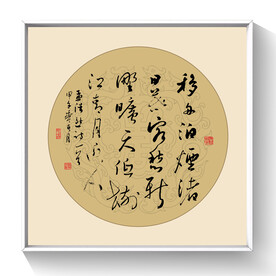 移舟泊煙渚
日暮客愁新
野曠天低樹
江清月近人
孟浩然詩一首
甲午